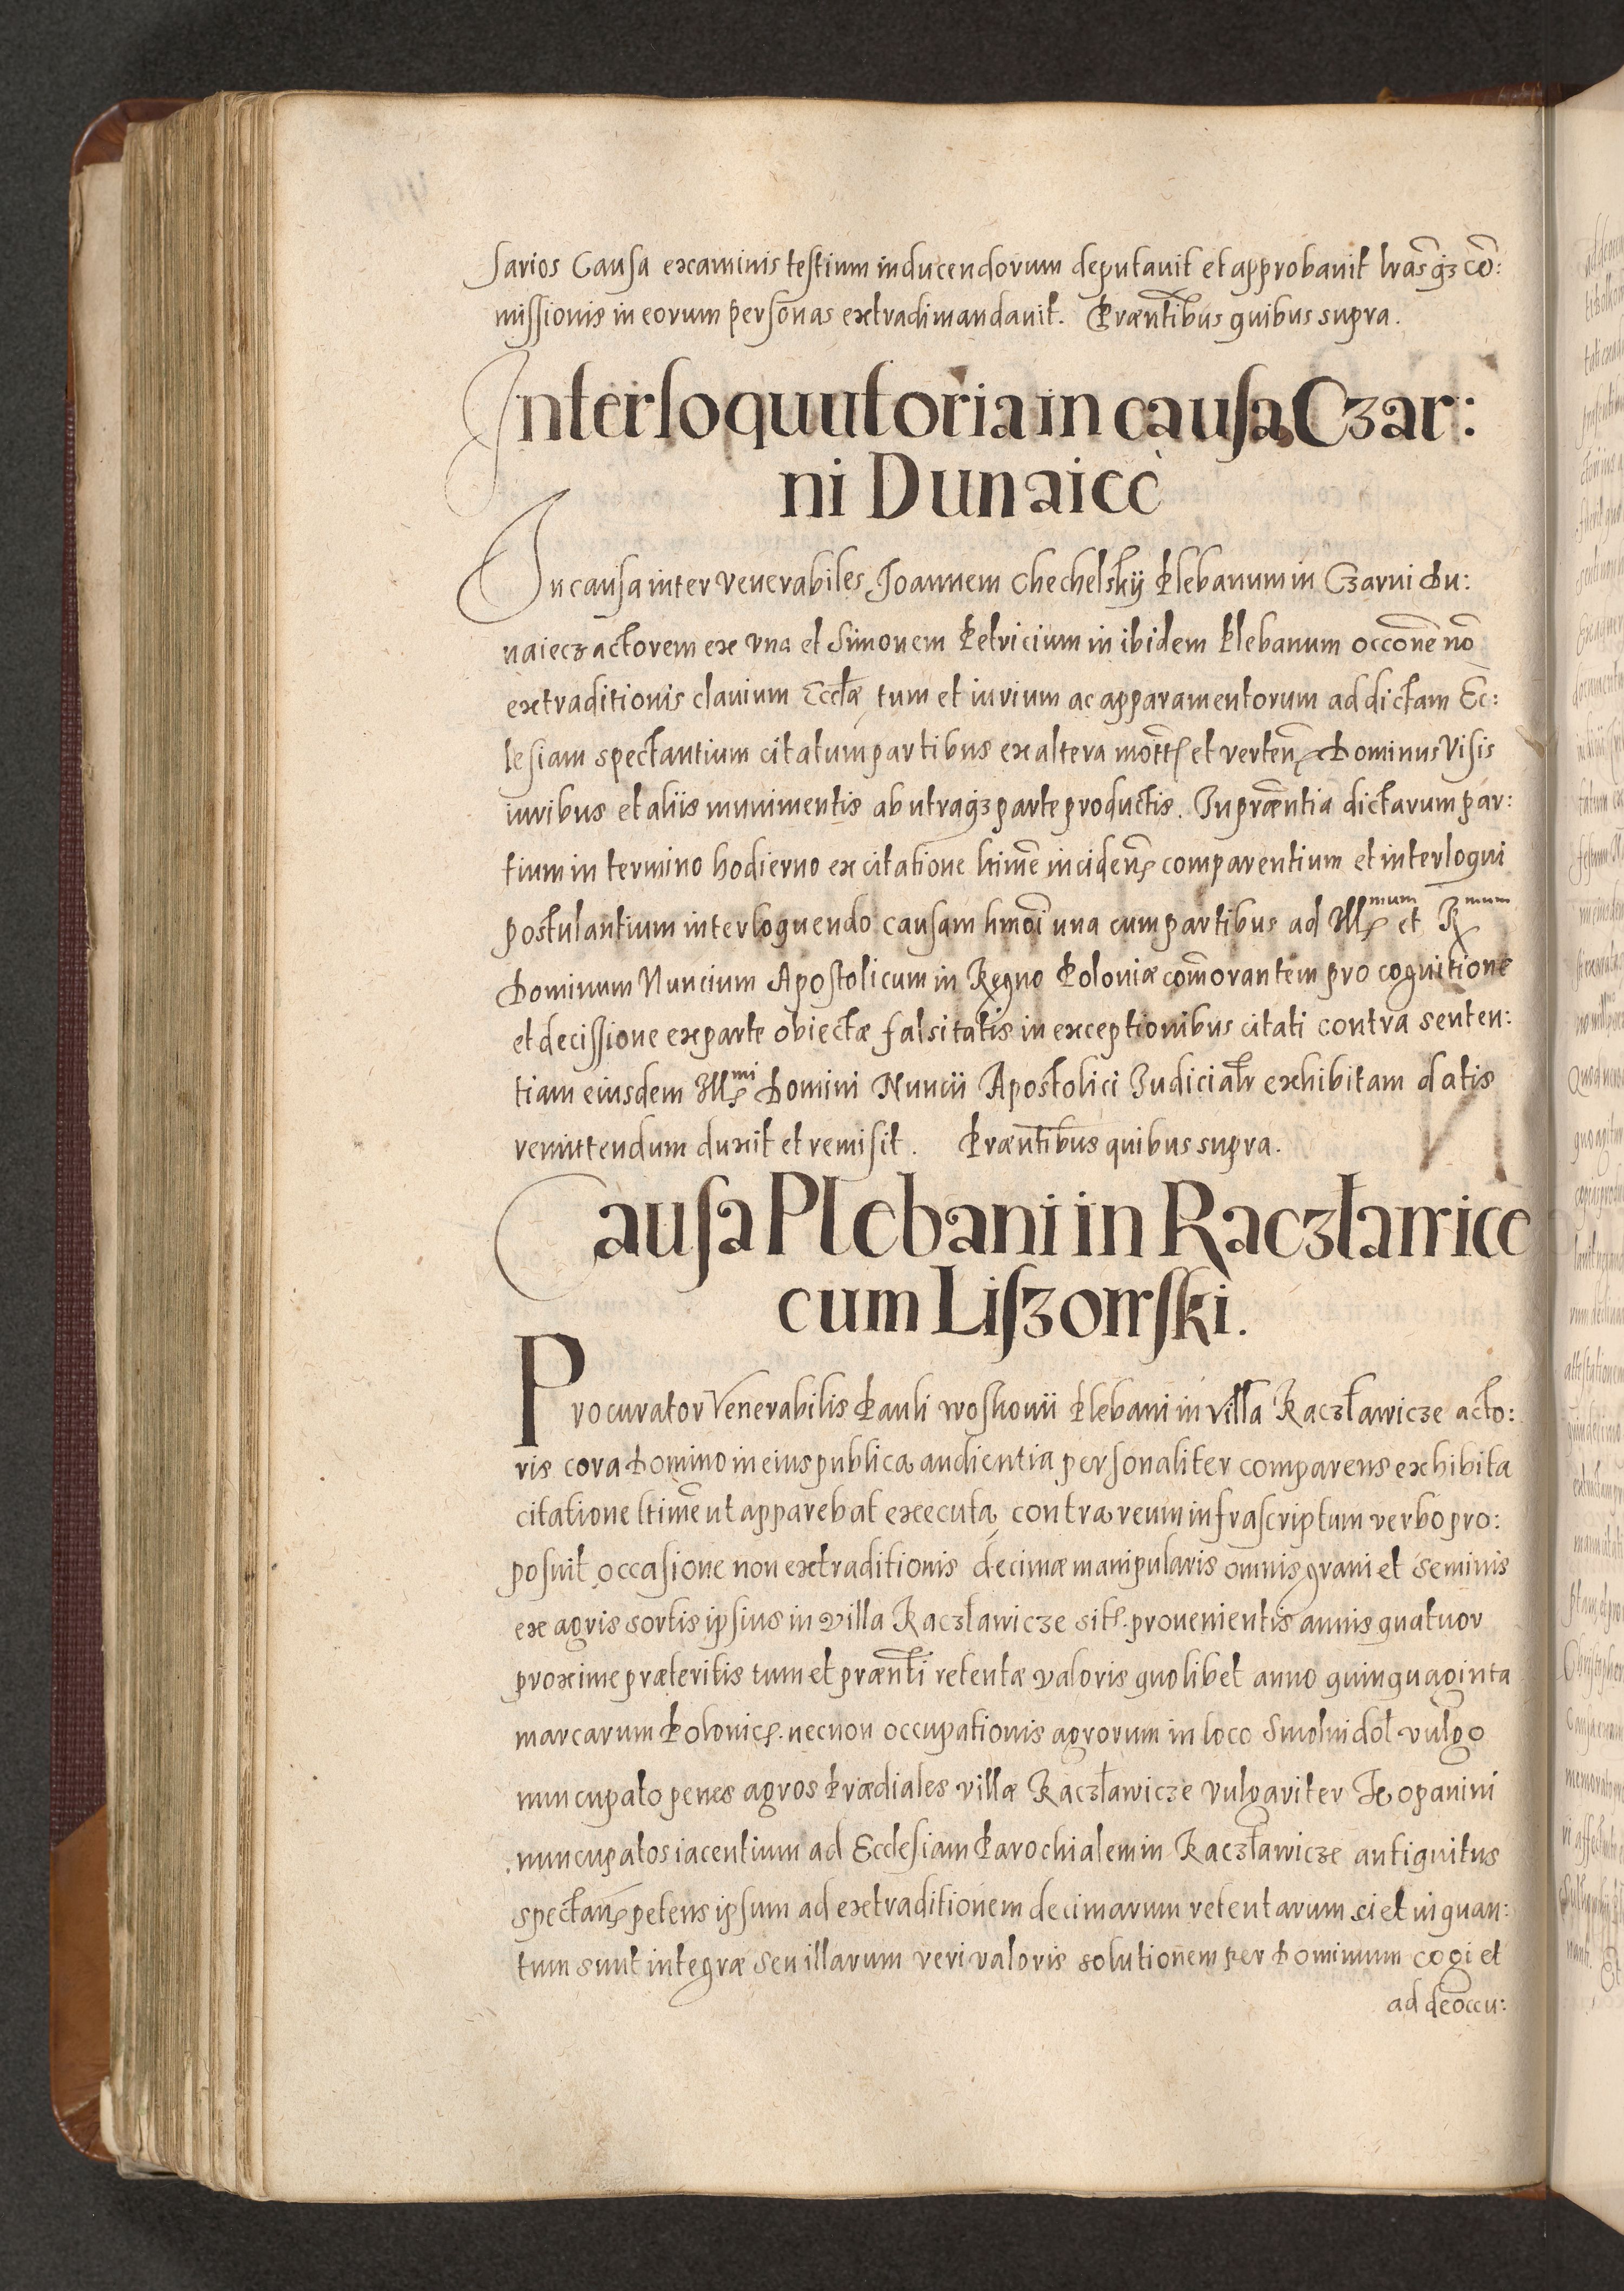 sarios Causa examinis testium inducendorum deputauit et approbauit lrãsq3 cõ:
missionis in eorum personas extradi mandauit. Præntibus quibus supra.
Interloquutoria in causa Czar:
ni Dunaiec
In causa inter venerabiles Joannem Chechelskÿ Plebanum in Czarni Du:
naiecz actorem ex vna et Simonem Petricium in ibidem Plebanum occõne nõ
extraditionis clauium Eccłæ, tum et iurium ac apparamentorum ad dictam Ec:
lesiam spectantium citatum partibus ex altera mott. et verteñ. Dominus visis
iuribus et aliis munimentis ab utraq3 parte productis. In præntia dictarum par:
tium in termino hodierno ex citatione ltimẽ incideñ. comparentium et interloqui
postulantium interloquendo causam hmõi una cum partibus ad Ill.mum et R.mum
Dominum Nuncium Apostolicum in Regno Poloniæ com̃orantem pro cognitione
et decissione ex parte obiectæ falsitatis in exceptionibus citati contra senten:
tiam eiusdem Ill.mi Domini Nuncii Apostolici Judicialr exhibitam datis
remittendum duxit et remisit. Præntibus quibus supra.
Causa Plebani in Raczławice
cum Liszowski.
Procurator Venerabilis Pauli Woskouii Plebani in villa Raczławicze acto:
ris cora Domino in eius publica audientia personaliter comparens exhibita
citatione ltimẽ ut apparebat executa, contra reum infrascriptum verbo pro:
posuit occasione non extraditionis decimæ manipularis omnis grani et seminis
ex agris sortis ipsius in villa Raczławicze sit. prouenientis annis quatuor
proxime præteritis tum et prænti retentæ valoris quolibet anno quinquaginta
marcarum Polonic. necnon occupationis agrorum in loco Smolnidol vulgo
nuncupato penes agros Prædiales villæ Raczławicze vulgariter Kopanini
nuncupatos iacentium ad Ecclesiam Parochialem in Raczławicze antiquitus
spectañ. petens ipsum ad extraditionem decimarum retentarum si et in quan:
tum sunt integræ seu illarum veri valoris solutionem per Dominum cogi et
ad deoccu: